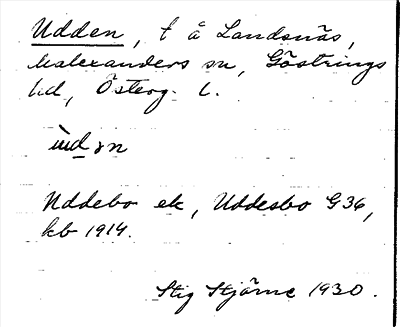 Udden, t å Landsnäs,
Malexanders sn, Göstrings
hd, Österg. l.
ùd ɤn
Uddebo ek, Uddesbo G36,
kb 1914.
Stig Stjärne 1930.